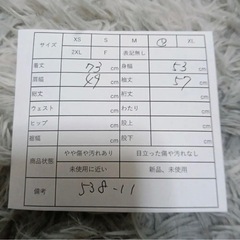 サイズ XS S M Ⓛ XL
2XL F 表記無し
着丈 73 cm 身幅 53 cm
肩幅 49 cm 袖丈 57 cm
裄丈 cm 前丈 cm
ウェスト cm わたり cm
ヒップ cm 股上 cm
裾幅 cm 股下 cm
商品状態 やや傷や汚れあり 目立った傷や汚れなし
未使用に近い 新品、未使用
備考 538-11